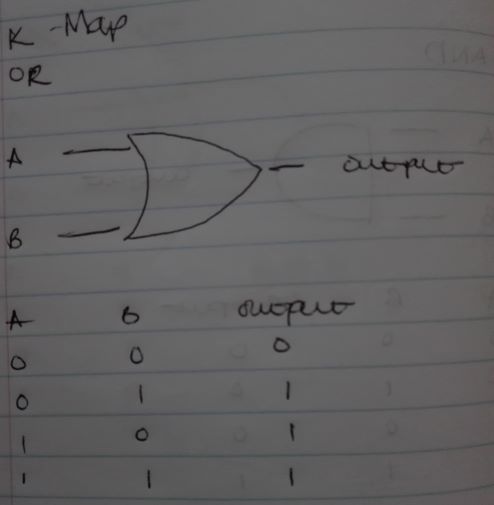 K-Map
OR
A output
B
A B output
0 0 0
0 1 1
1 0 1
1 1 1